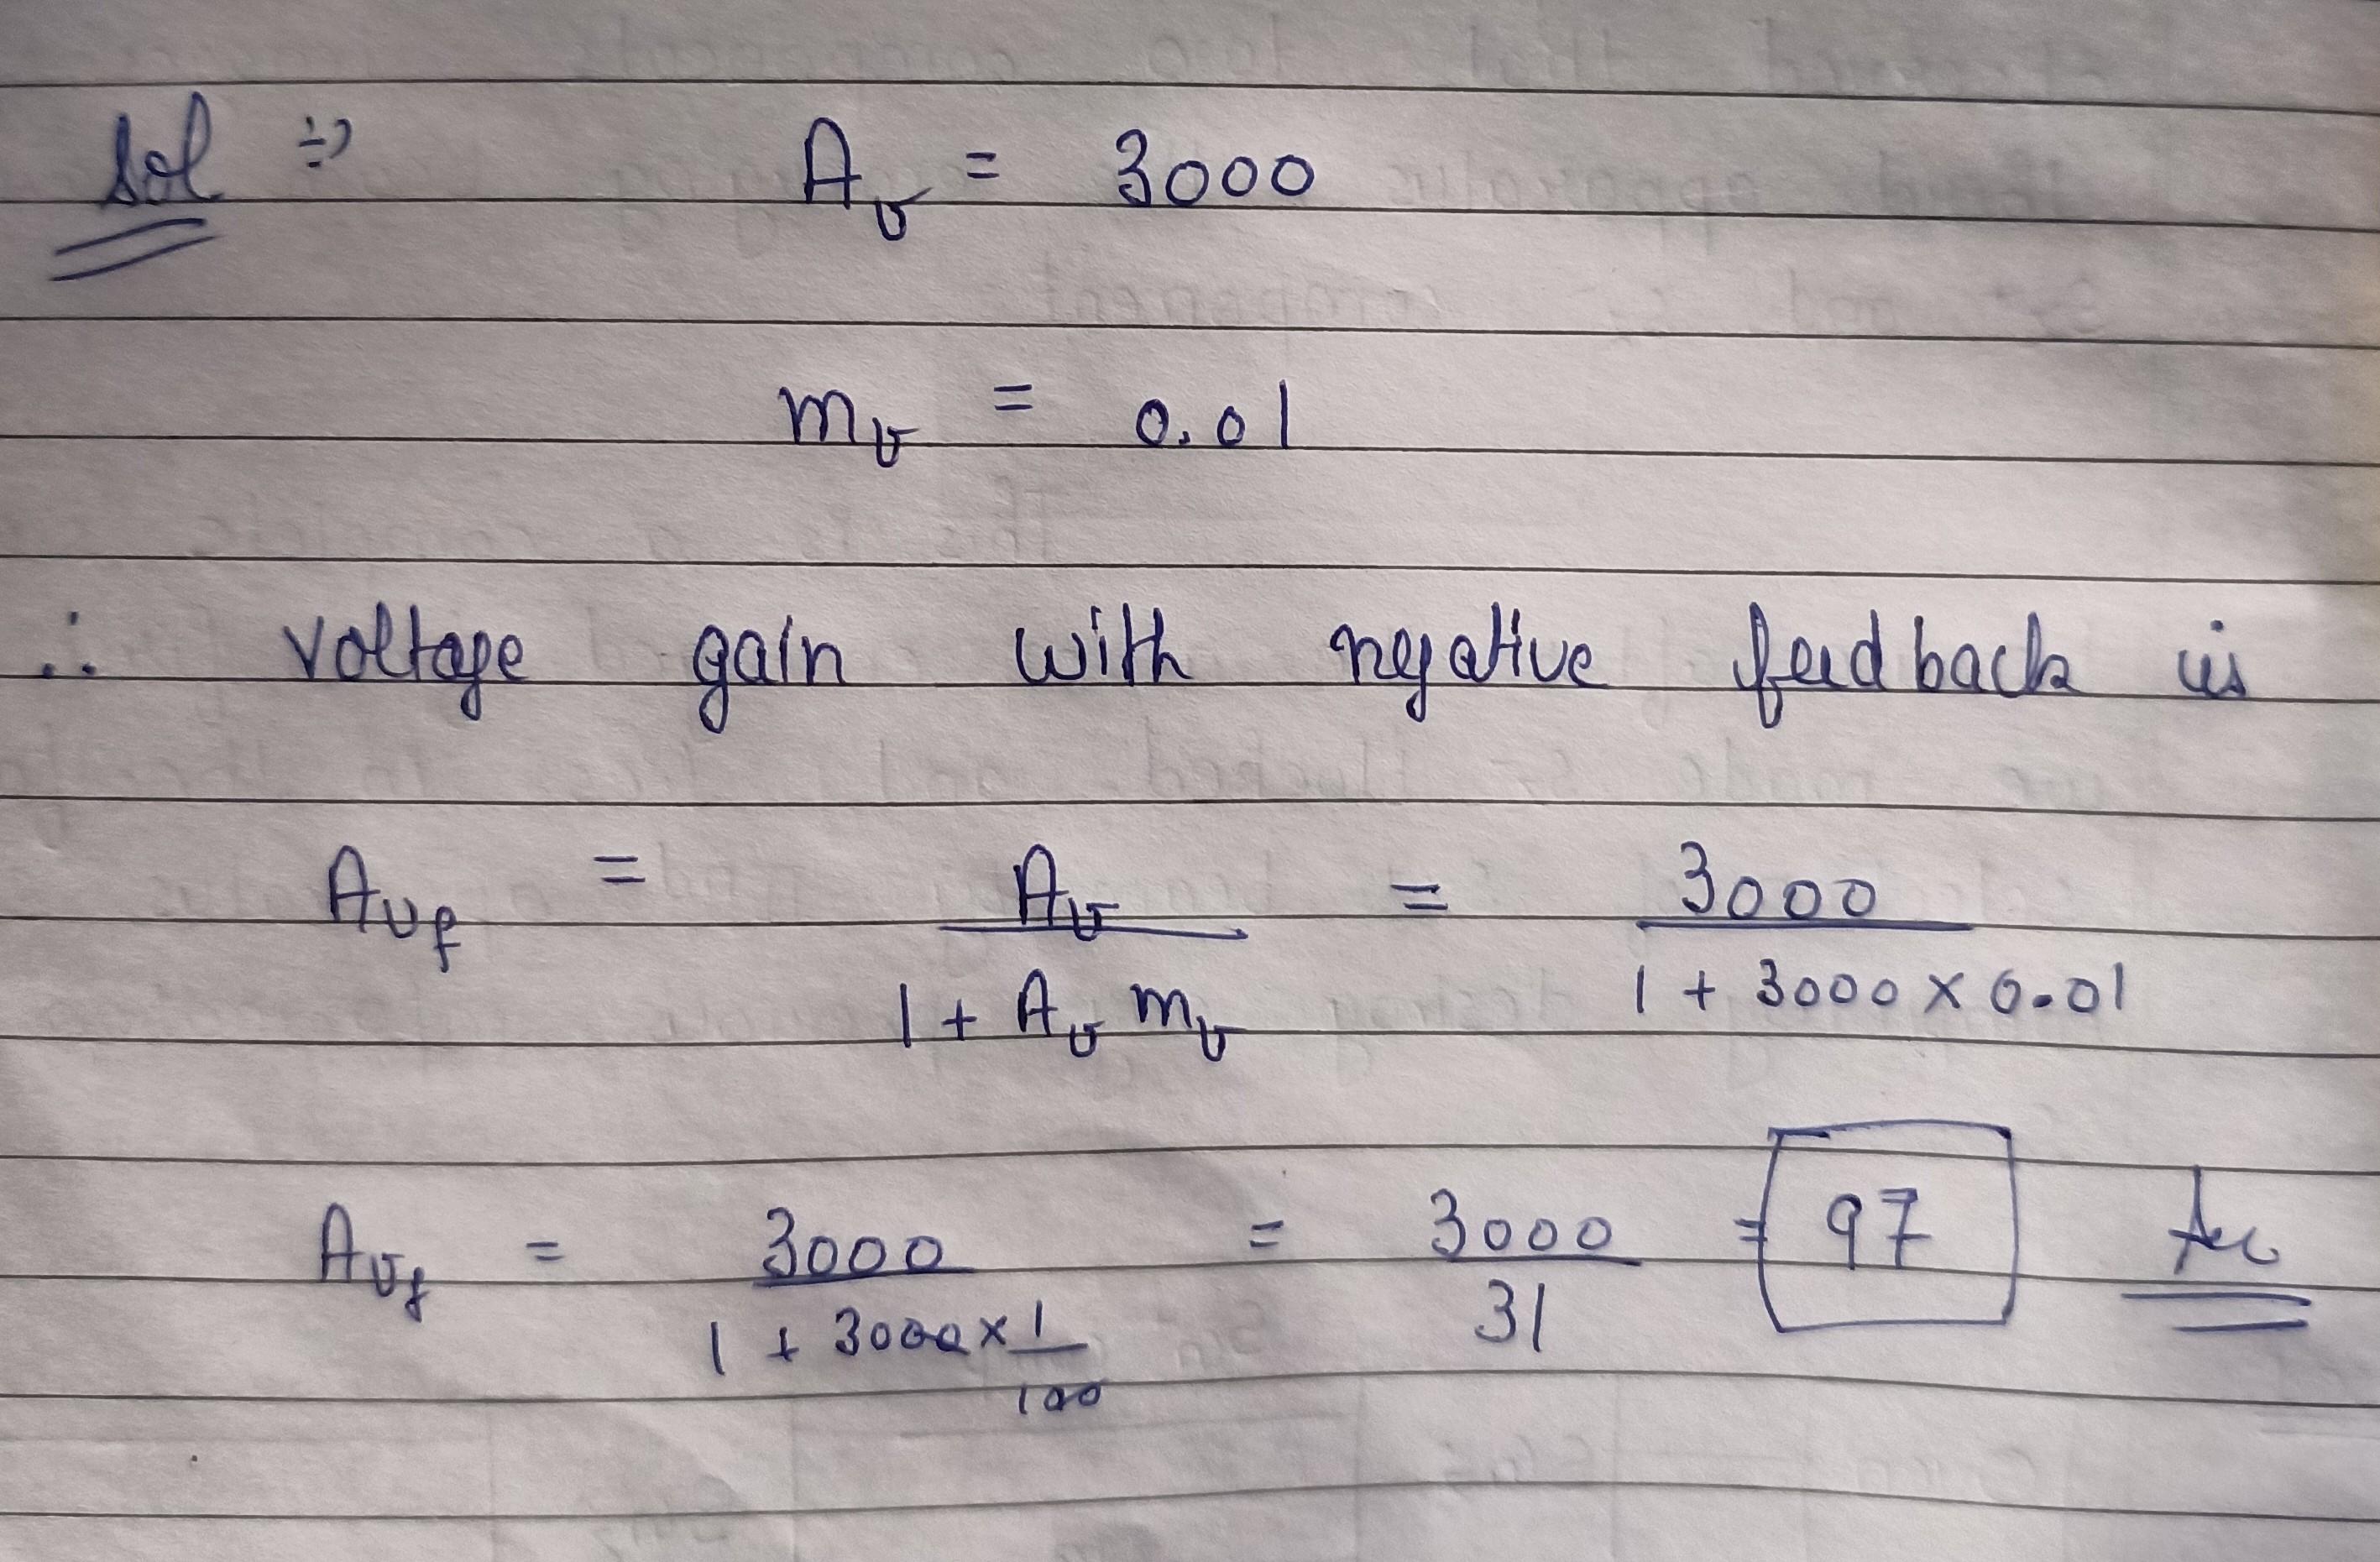 Sol ⇒ A_v = 3000
m_v = 0.01
∴ voltage gain with negative feedback is
A_vf = A_v / (1 + A_v m_v) = 3000 / (1 + 3000 × 0.01)
A_vf = 3000 / (1 + 3000 × 1/100) = 3000 / 31 = 97